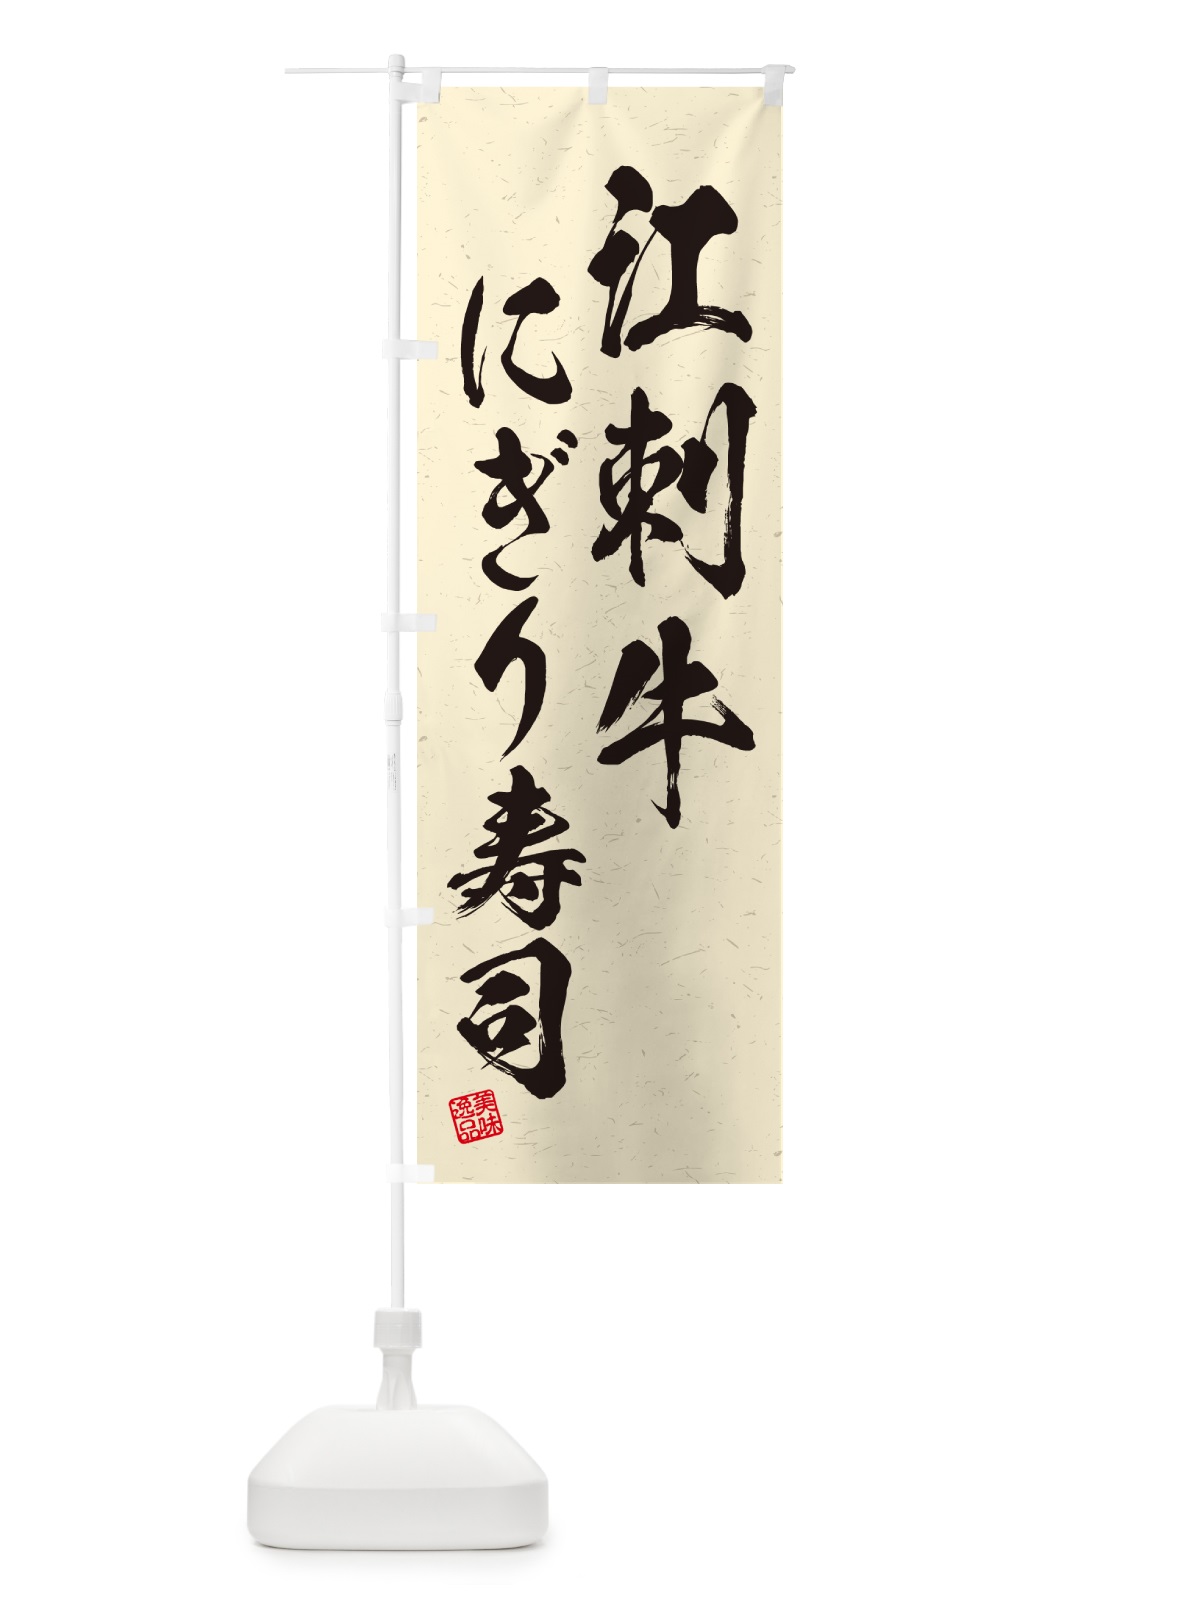 江刺牛
にぎり寿司
美味
逸品